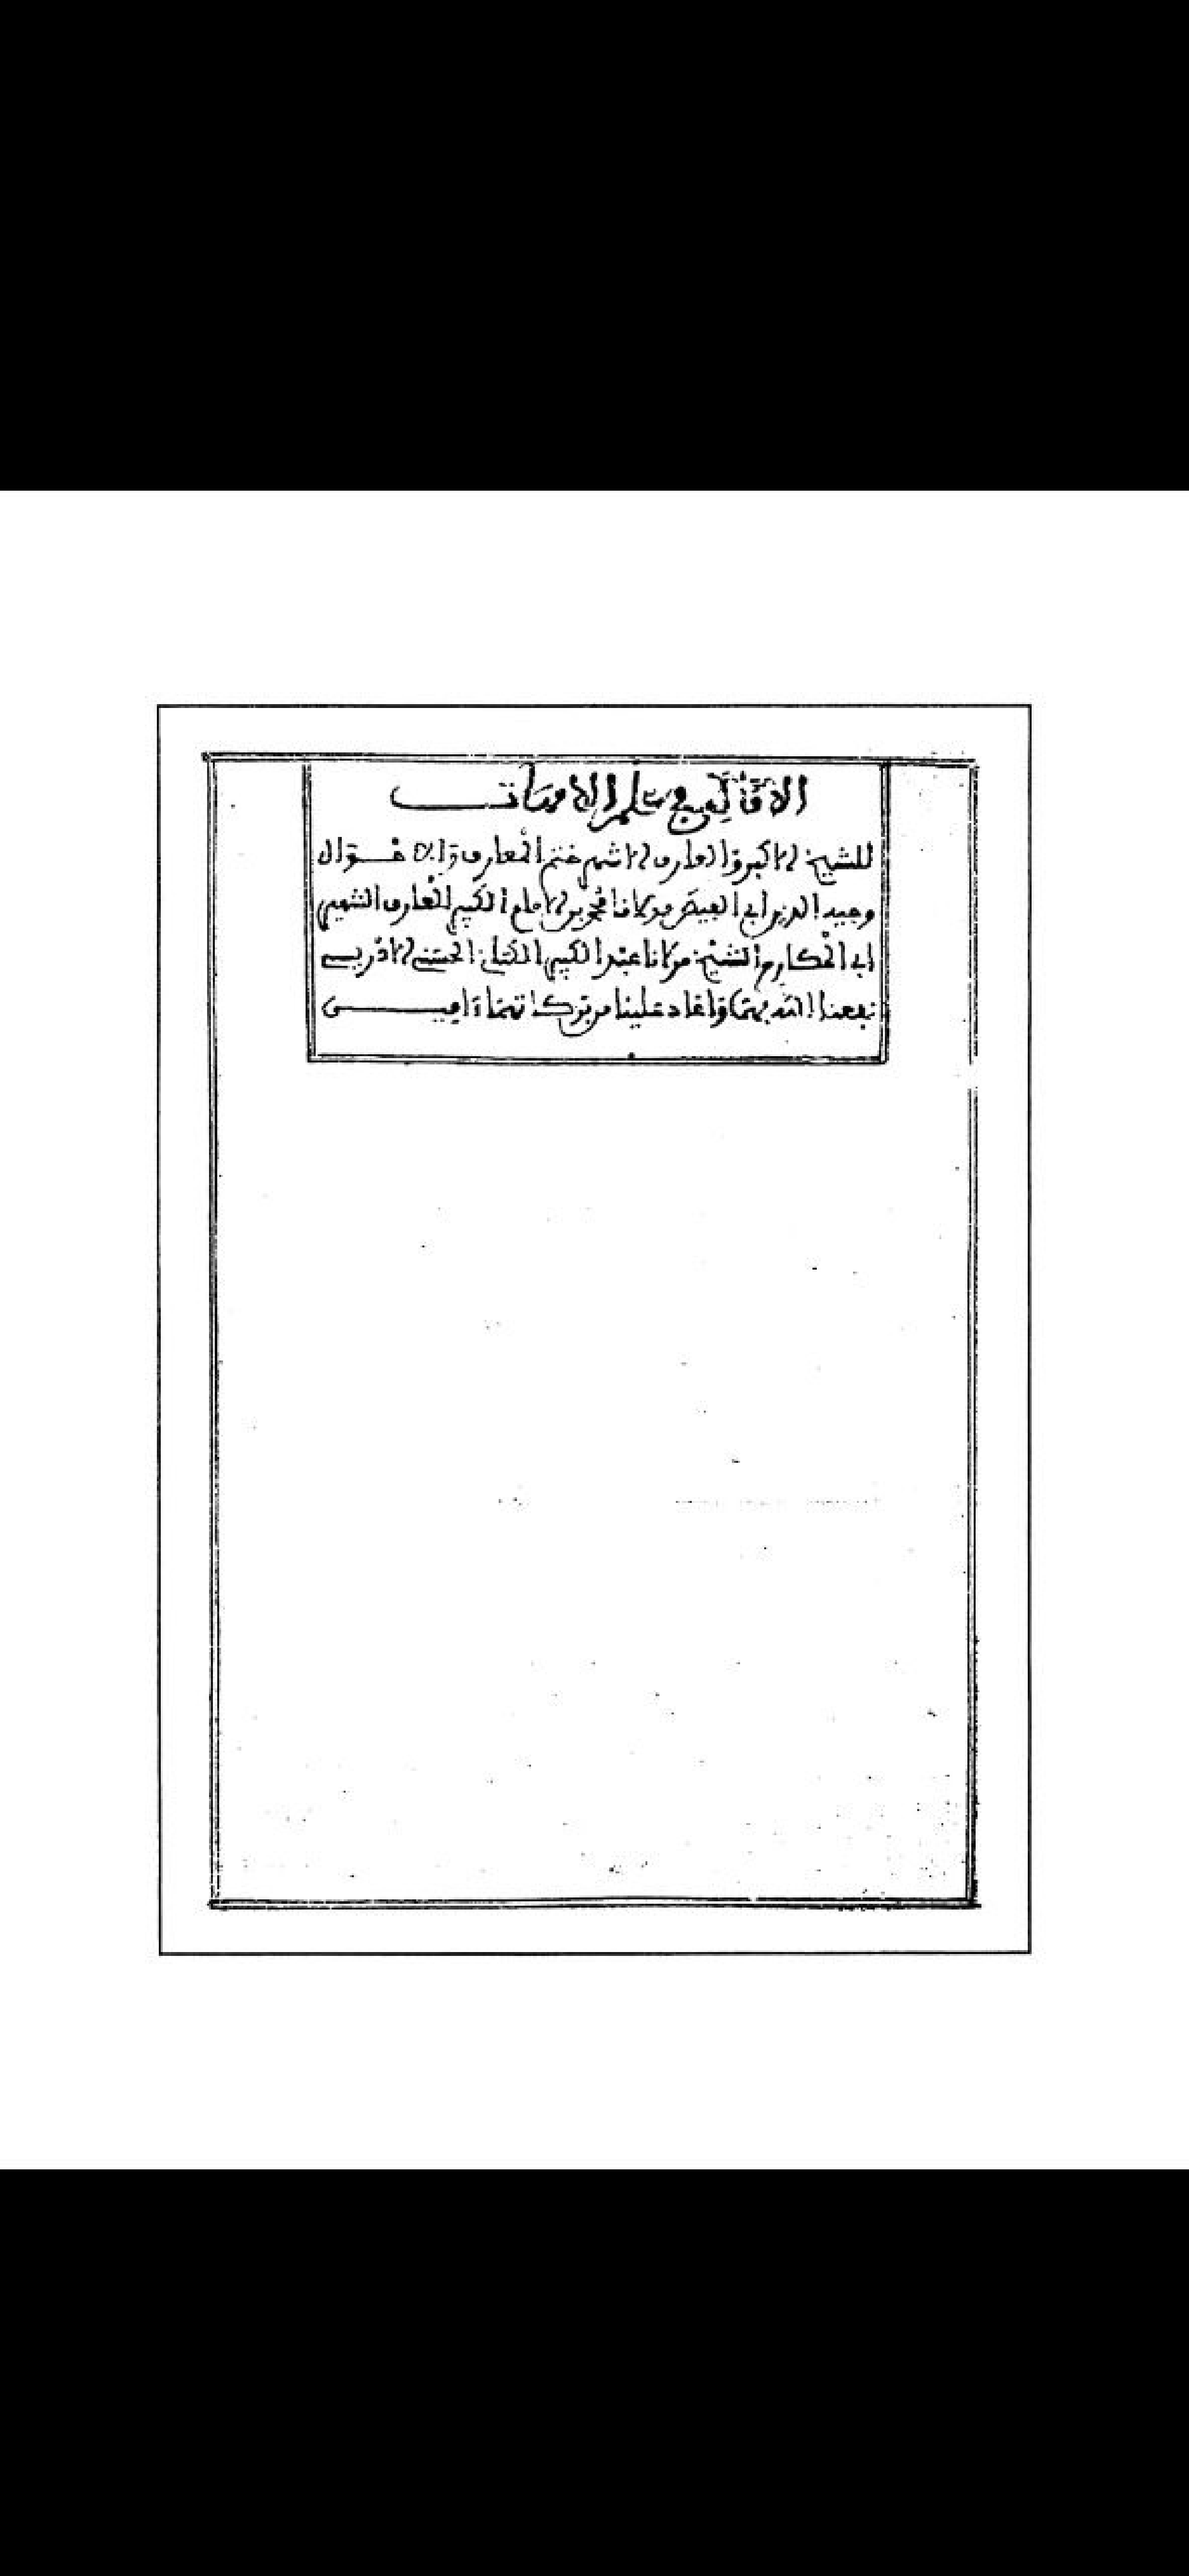 الأقاليم في علم الأمهات
للشيخ الأكبر والعارف الأشهر ختم المعارف والأ
وحيد الدين أبي الفيض مولانا محمد بن الإمام الكبير العارف الشهير
أبي المكارم الشيخ مولانا عبد الكبير الكتاني الحسني الإدريسي
نفعنا الله بهما وأعاد علينا من بركاتهما ءاميـــن